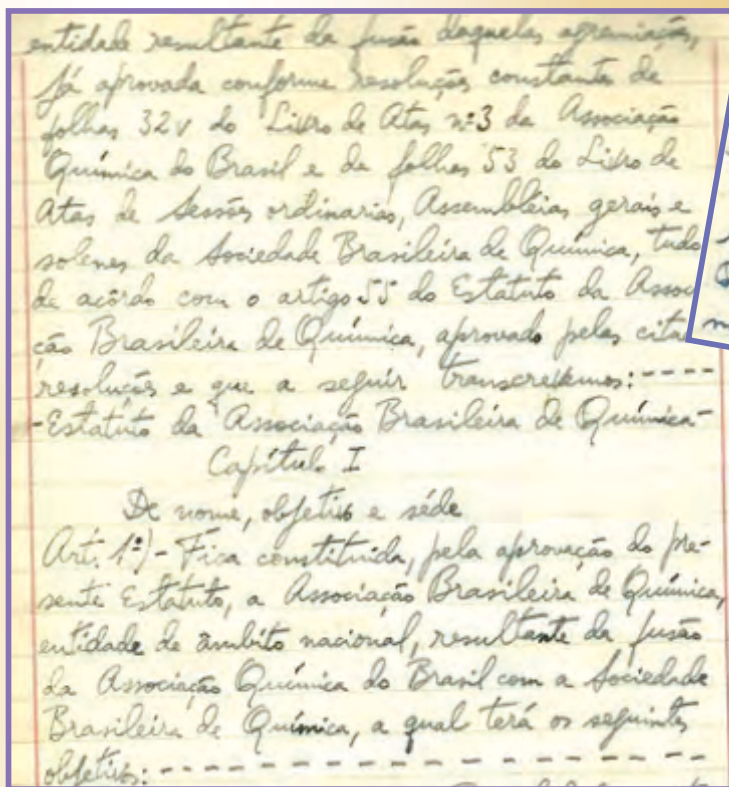 entidade resultante da fusão daquelas agremiações,
já aprovada conforme resoluções constantes de
folhas 32v do Livro de Atas nº 3 da Associação
Química do Brasil e de folhas 53 do Livro de
Atas de Sessões ordinarias, Assembléias gerais e
solenes da Sociedade Brasileira de Química, tudo
de acôrdo com o artigo 55 do Estatuto da Assou
ção Brasileira de Química, aprovado pelas cita
resoluções e que a seguir transcrevemos: ----
-Estatuto da Associação Brasileira de Química-
Capítulo I
De nome, objetivo e séde
Art. 1º) - Fica constituida, pela aprovação do pre-
sente Estatuto, a Associação Brasileira de Química,
entidade de âmbito nacional, resultante da fusão
da Associação Química do Brasil com a Sociedade
Brasileira de Química, a qual terá os seguintes
objetivos: - - - - - - - - - - - - - - -